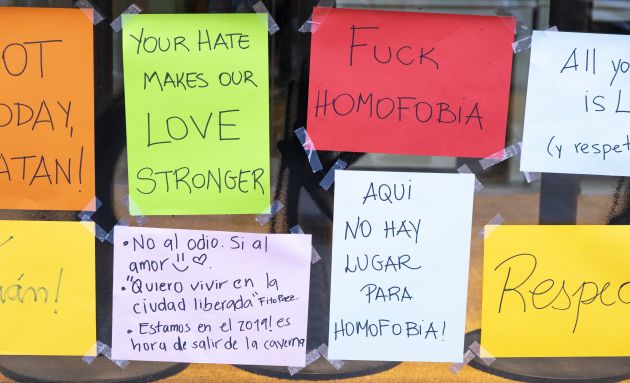 OT
ODAY,
ATAN!
YOUR HATE
MAKES OUR
LOVE
STRONGER
FUCK
HOMOFOBIA
All yo
is L
(y respet
án!
• No al odio. Si al
amor
• "Quiero vivir en la
ciudad liberada" Fito Paez..
• Estamos en el 2019! es
hora de salir de la caverna
AQUI
NO HAY
LUGAR
PARA
HOMOFOBIA!
Respec